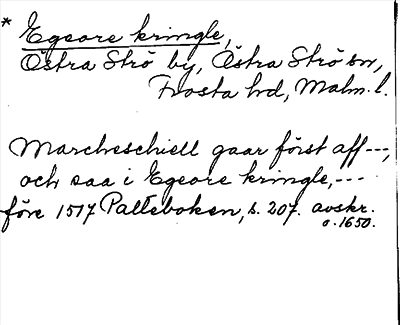 * Egeore kringle,
Östra Strö by, Östra Strö sn,
Frosta hd, Malm. l.
Marcheschiell gaar först aff ---,
och saa i Egeore kringle, ---
före 1517 Palteboken, s. 207. avskr.
o. 1650.